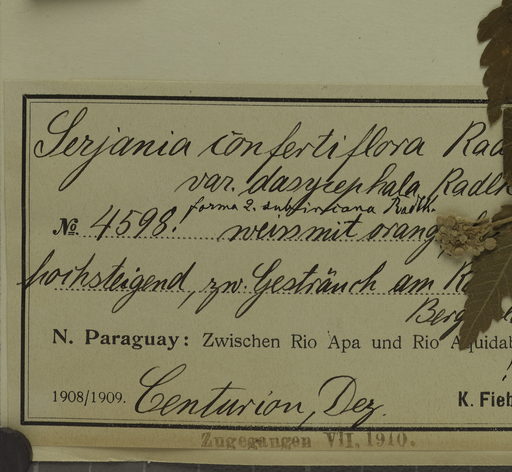 Serjania confertiflora Rad
var. dasycephala Radlk
forma 2. subhirtiana Radlk.
No. 4598. weiss mit orang
hochsteigend, zw. Gesträuch am
Berg
N. Paraguay: Zwischen Rio Apa und Rio Aquidab
1908/1909. Centurion, Dez. K. Fieb
Zugegangen VII. 1910.